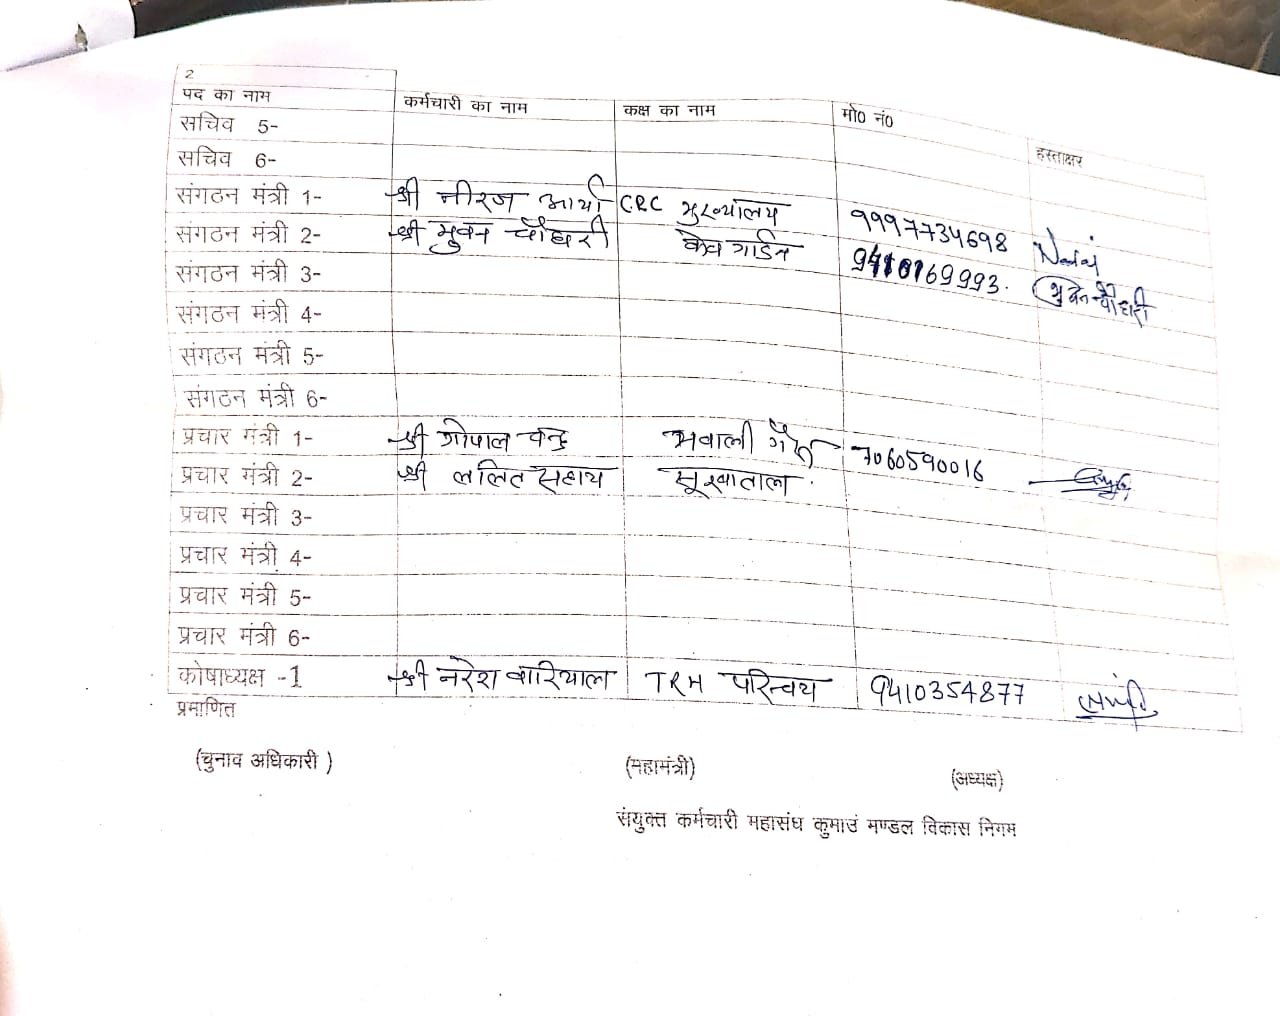 2
पद का नाम कर्मचारी का नाम कक्ष का नाम मो0 नं0 हस्ताक्षर
सचिव 5-
सचिव 6-
संगठन मंत्री 1- श्री नीरज आर्या CRC मुख्यालय 9997734698
संगठन मंत्री 2- श्री भुवन चौधरी केव गार्डन 9410169993. भुवन चौधरी
संगठन मंत्री 3-
संगठन मंत्री 4-
संगठन मंत्री 5-
संगठन मंत्री 6-
प्रचार मंत्री 1- श्री गोपाल चन्द्र भवाली गैस 7060590016
प्रचार मंत्री 2- श्री ललित सहाय सूखाताल
प्रचार मंत्री 3-
प्रचार मंत्री 4-
प्रचार मंत्री 5-
प्रचार मंत्री 6-
कोषाध्यक्ष -1 श्री नरेश TRH परिचय 9410354877
प्रमाणित
(चुनाव अधिकारी ) (महामंत्री) (अध्यक्ष)
संयुक्त कर्मचारी महासंघ कुमाउं मण्डल विकास निगम